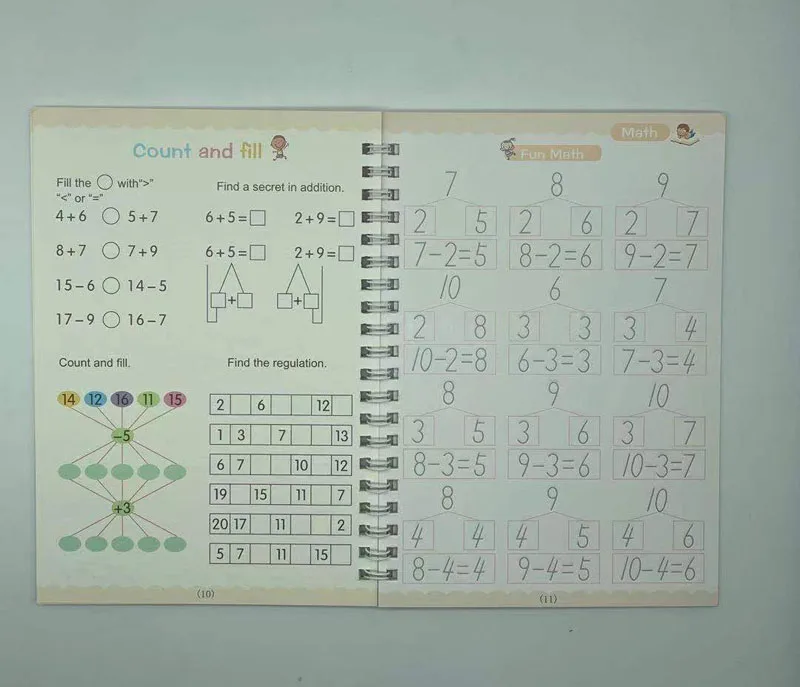 Count and fill
Fill the ○ with">"
"<" or "="
4+6 ○ 5+7
8+7 ○ 7+9
15-6 ○ 14-5
17-9 ○ 16-7
Find a secret in addition.
6+5=□ 2+9=□
6+5=□ 2+9=□
□+□ □+□
Count and fill.
14 12 16 11 15
-5
+3
Find the regulation.
2 6 12
1 3 7 13
6 7 10 12
19 15 11 7
20 17 11 2
5 7 11 15
(10)
Math
Fun Math
7 8 9
2 5 2 6 2 7
7-2=5 8-2=6 9-2=7
10 6 7
2 8 3 3 3 4
10-2=8 6-3=3 7-3=4
8 9 10
3 5 3 6 3 7
8-3=5 9-3=6 10-3=7
8 9 10
4 4 4 5 4 6
8-4=4 9-4=5 10-4=6
(11)